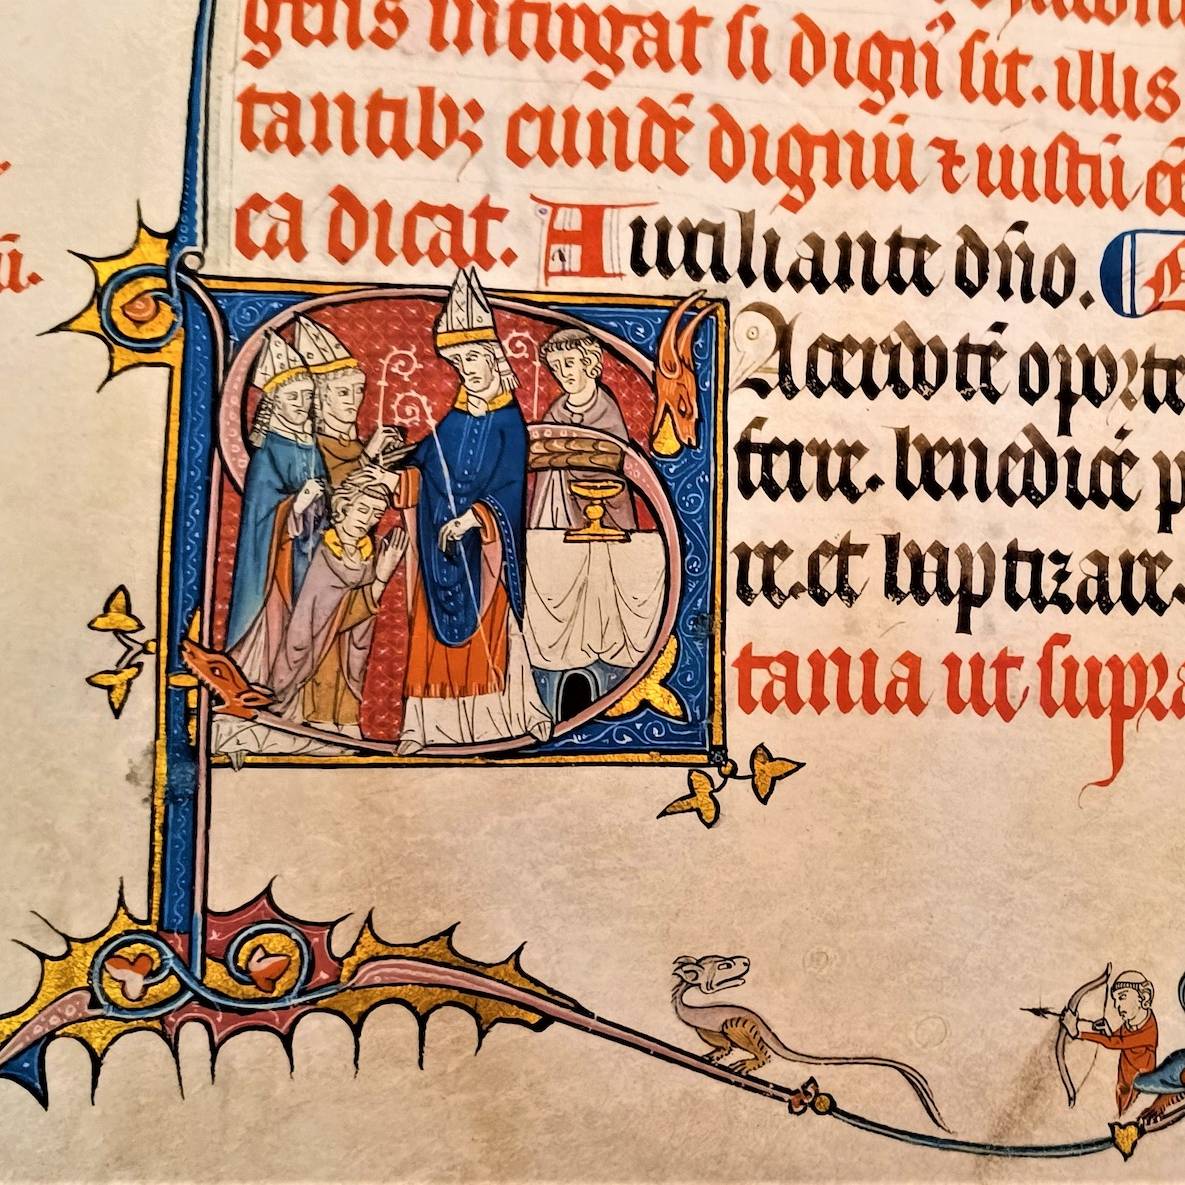 gens intingat si dign̄ sit. illis
tantib; cundē dignū ⁊ iustū eē
ca dicat. Auxiliante dn̄o.
Sacerdotē oporte
ferre. benedicē p
re. et baptizare.
tania ut supra